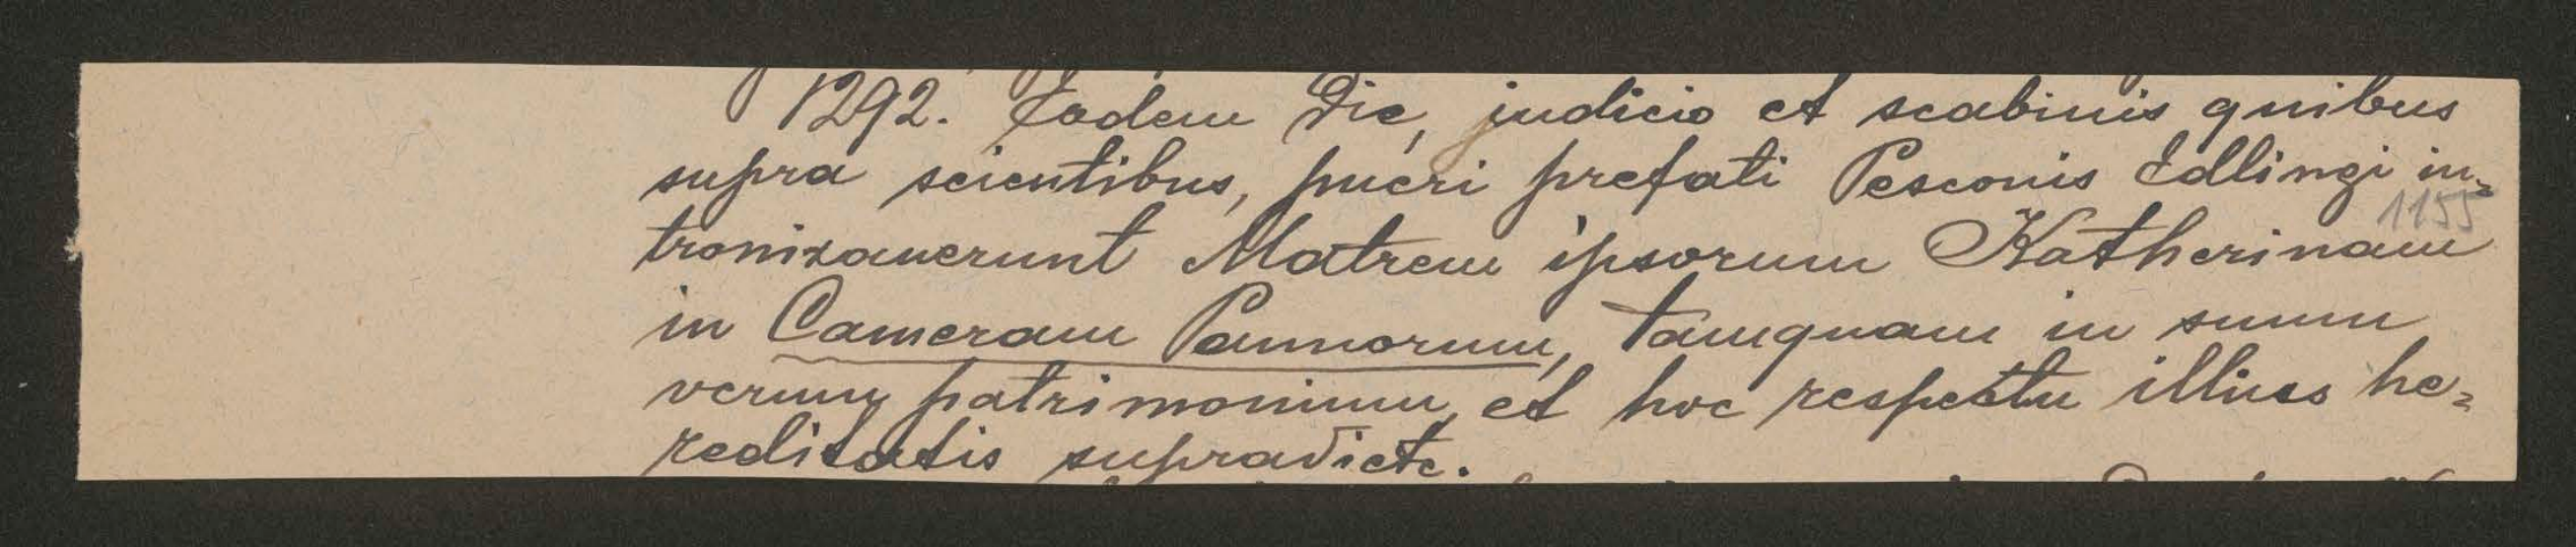 1292. Eodem die, judicio et scabinis quibus
supra scientibus, pueri prefati Pesconis Edlingi in=
1155
tronizauerunt Matrem ipsorum Katherinam
in Cameram Pannorum, tamquam in suum
verum patrimonium, et hoc respectu illius he=
reditatis supradicte.